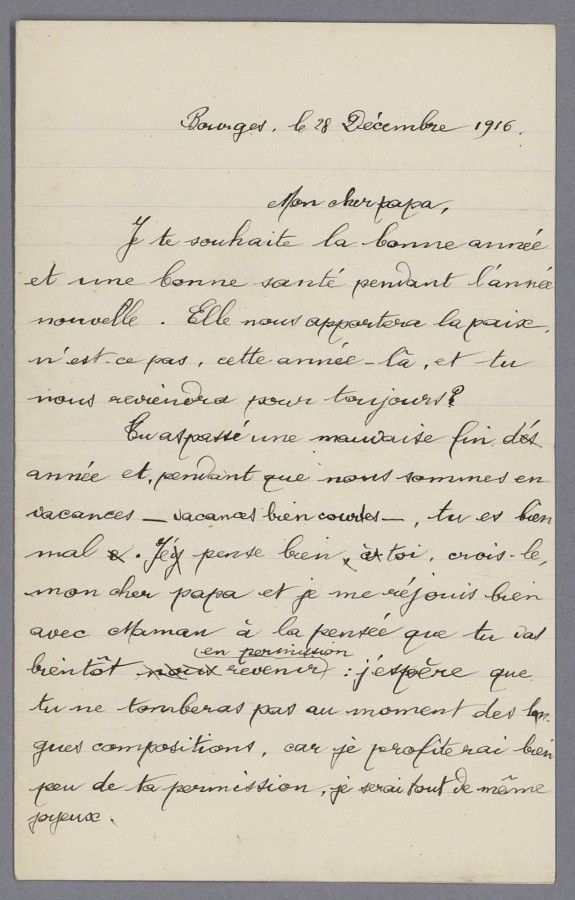 Bourges, le 28 Décembre 1916.
Mon cher papa,
Je te souhaite la bonne année
et une bonne santé pendant l'année
nouvelle. Elle nous apportera la paix,
n'est-ce pas, cette année-là, et tu
nous reviendra pour toujours?
Tu as passé une mauvaise fin
année et, pendant que nous sommes en
vacances — vacances bien courtes —, tu es bien
mal. J'y pense bien, à toi, crois-le,
mon cher papa et je me réjouis bien
avec Maman à la pensée que tu vas
(en permission
bientôt nous revenir) : j'espère que
tu ne tomberas pas au moment des lon-
gues compositions, car je profiterai bien
peu de ta permission, je serai tout de même
joyeux.